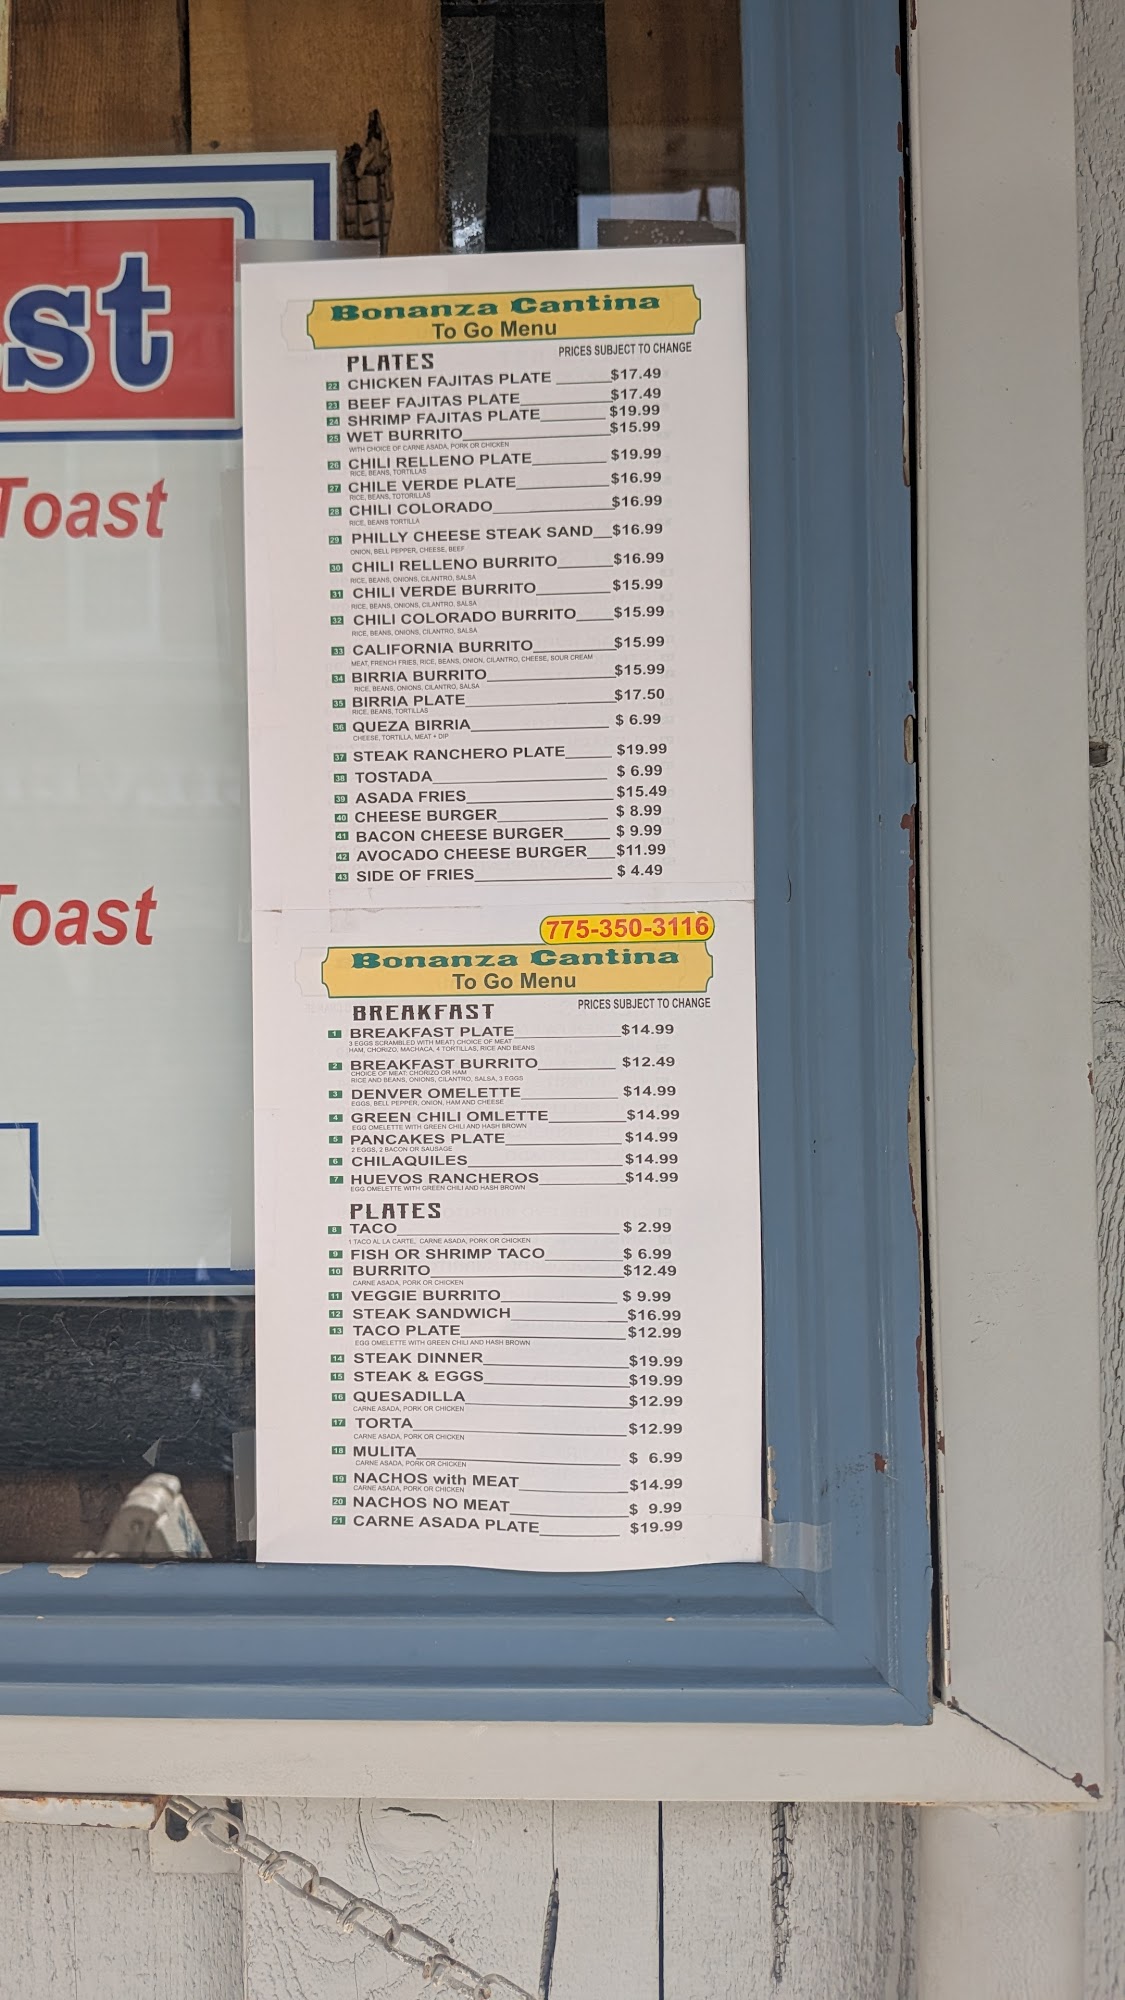 st
Toast
Toast
Bonanza Cantina
To Go Menu
PLATES
PRICES SUBJECT TO CHANGE
22 CHICKEN FAJITAS PLATE $17.49
23 BEEF FAJITAS PLATE $17.49
24 SHRIMP FAJITAS PLATE $19.99
25 WET BURRITO $15.99
WITH CHOICE OF CARNE ASADA, PORK OR CHICKEN
26 CHILI RELLENO PLATE $19.99
RICE, BEANS, TORTILLAS
27 CHILE VERDE PLATE $16.99
RICE, BEANS, TOTORILLAS
28 CHILI COLORADO $16.99
RICE, BEANS TORTILLA
29 PHILLY CHEESE STEAK SAND $16.99
ONION, BELL PEPPER, CHEESE, BEEF
30 CHILI RELLENO BURRITO $16.99
RICE, BEANS, ONIONS, CILANTRO, SALSA
31 CHILI VERDE BURRITO $15.99
RICE, BEANS, ONIONS, CILANTRO, SALSA
32 CHILI COLORADO BURRITO $15.99
RICE, BEANS, ONIONS, CILANTRO, SALSA
33 CALIFORNIA BURRITO $15.99
MEAT, FRENCH FRIES, RICE, BEANS, ONION, CILANTRO, CHEESE, SOUR CREAM
34 BIRRIA BURRITO $15.99
RICE, BEANS, ONIONS, CILANTRO, SALSA
35 BIRRIA PLATE $17.50
RICE, BEANS, TORTILLAS
36 QUEZA BIRRIA $ 6.99
CHEESE, TORTILLA, MEAT + DIP
37 STEAK RANCHERO PLATE $19.99
38 TOSTADA $ 6.99
39 ASADA FRIES $15.49
40 CHEESE BURGER $ 8.99
41 BACON CHEESE BURGER $ 9.99
42 AVOCADO CHEESE BURGER $11.99
43 SIDE OF FRIES $ 4.49
775-350-3116
Bonanza Cantina
To Go Menu
BREAKFAST
PRICES SUBJECT TO CHANGE
1 BREAKFAST PLATE $14.99
3 EGGS SCRAMBLED WITH MEAT) CHOICE OF MEAT
HAM, CHORIZO, MACHACA, 4 TORTILLAS, RICE AND BEANS
2 BREAKFAST BURRITO $12.49
CHOICE OF MEAT: CHORIZO OR HAM
RICE AND BEANS, ONIONS, CILANTRO, SALSA, 3 EGGS
3 DENVER OMELETTE $14.99
EGGS, BELL PEPPER, ONION, HAM AND CHEESE
4 GREEN CHILI OMLETTE $14.99
EGG OMELETTE WITH GREEN CHILI AND HASH BROWN
5 PANCAKES PLATE $14.99
2 EGGS, 2 BACON OR SAUSAGE
6 CHILAQUILES $14.99
7 HUEVOS RANCHEROS $14.99
EGG OMELETTE WITH GREEN CHILI AND HASH BROWN
PLATES
8 TACO $ 2.99
1 TACO AL LA CARTE, CARNE ASADA, PORK OR CHICKEN
9 FISH OR SHRIMP TACO $ 6.99
10 BURRITO $12.49
CARNE ASADA, PORK OR CHICKEN
11 VEGGIE BURRITO $ 9.99
12 STEAK SANDWICH $16.99
13 TACO PLATE $12.99
EGG OMELETTE WITH GREEN CHILI AND HASH BROWN
14 STEAK DINNER $19.99
15 STEAK & EGGS $19.99
16 QUESADILLA $12.99
CARNE ASADA, PORK OR CHICKEN
17 TORTA $12.99
CARNE ASADA, PORK OR CHICKEN
18 MULITA $ 6.99
CARNE ASADA, PORK OR CHICKEN
19 NACHOS with MEAT $14.99
CARNE ASADA, PORK OR CHICKEN
20 NACHOS NO MEAT $ 9.99
21 CARNE ASADA PLATE $19.99